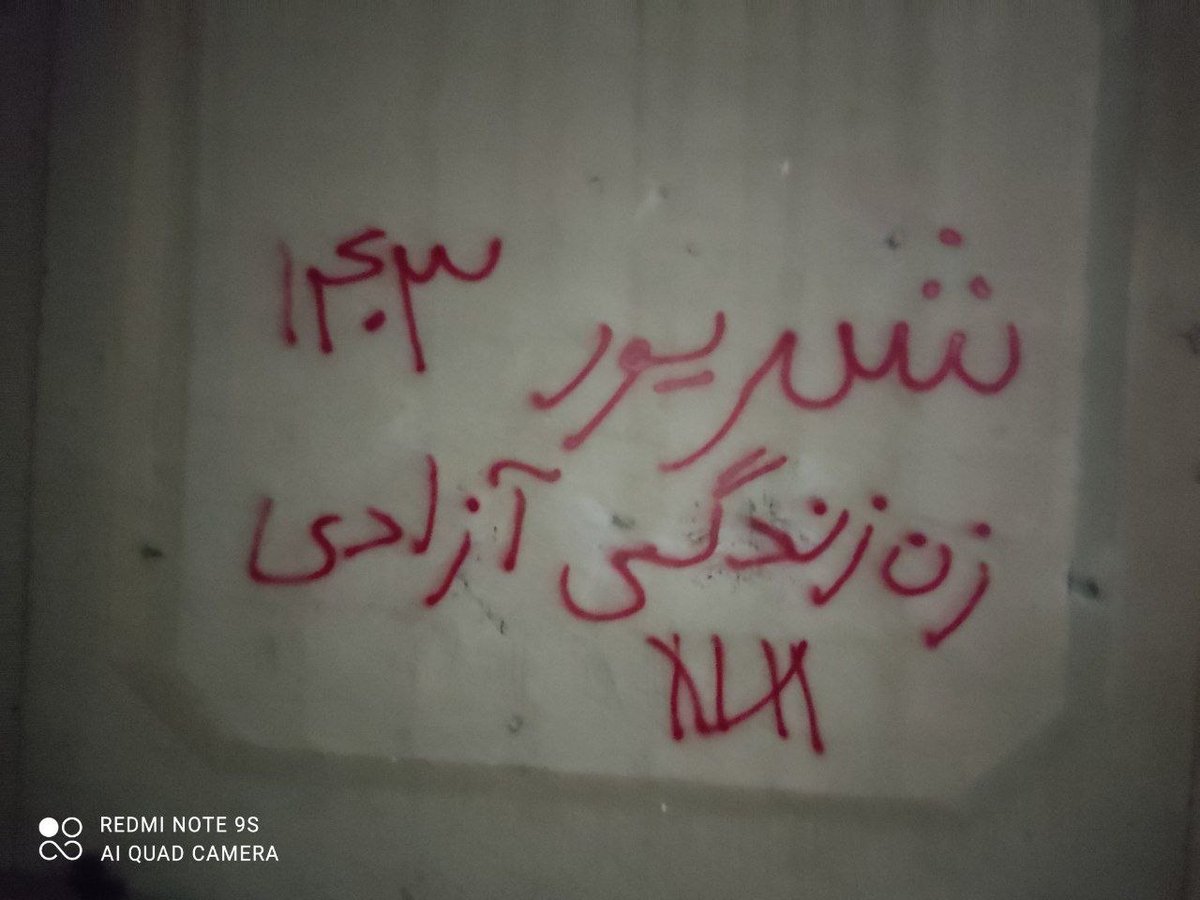 شهریور ۱۴۰۳
زن زندگی آزادی
REDMI NOTE 9S
AI QUAD CAMERA